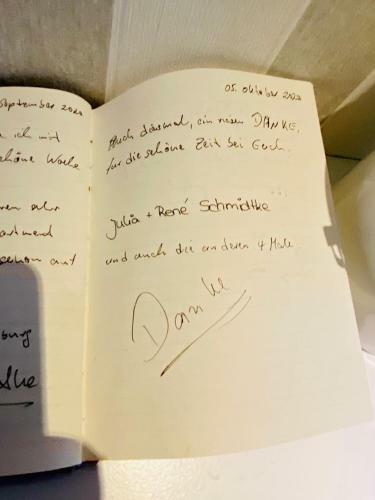 September 2020
ich mit
schöne Woche
ren sehr
artment
schon auf
burg
05. Oktober 2020
Auch diesmal, ein riesen DANKE,
für die schöne Zeit bei Euch.
Julia + René Schmidtke
und auch die anderen 4 Male.
Danke